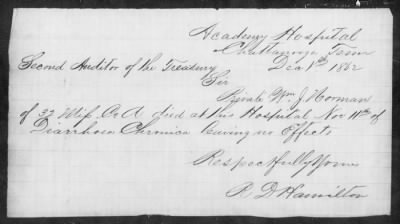 Academy Hospital
Chattanooga Tenn
Dec 1st 1862
Second Auditor of the Treasury
Sir
Private Wm J. Norman
of 32 Miss Co A died at this Hospital Nov 11th of
Diarrhoea Chronica leaving no Effects
Respectfully Yours
R D Hamilton